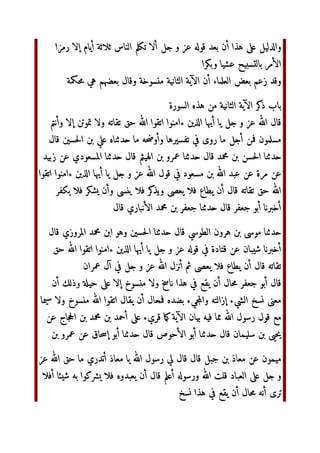 والدليل على هذا أن بعد قوله عز و جل ألا تكلم الناس ثلاثة أيام إلا رمزا
الأمر بالتسبيح عشيا وبكرا
وقد زعم بعض العلماء أن الآية الثانية منسوخة وقال بعضهم هي محكمة
باب ذكر الآية الثانية من هذه السورة
قال الله عز و جل يا أيها الذين ءامنوا اتقوا الله حق تقاته ولا تموتن إلا وأنتم
مسلمون فمن أجل ما روى في تفسيرها وأوضحه ما حدثناه علي بن الحسين قال
حدثنا الحسن بن محمد قال حدثنا عمرو بن الهيثم قال حدثنا المسعودي عن زبيد
عن مرة عن عبد الله بن مسعود في قول الله عز و جل يا أيها الذين ءامنوا اتقوا
الله حق تقاته قال أن يطاع فلا يعصى ويذكر فلا ينسى وأن يشكر فلا يكفر
أخبرنا أبو جعفر قال حدثنا جعفر بن محمد الأنباري قال
حدثنا موسى بن هرون الطوسي قال حدثنا الحسين وهو ابن محمد المروزي قال
أخبرنا شيبان عن قتادة في قوله عز و جل يا أيها الذين ءامنوا اتقوا الله حق
تقاته قال أن يطاع فلا يعصى ثم أنزل الله عز و جل في آل عمران
قال أبو جعفر محال أن يقع في هذا ناسخ ولا منسوخ إلا على حيلة وذلك أن
معنى نسخ الشيء إزالته والمجيء بضده فمحال أن يقال اتقوا الله منسوخ ولا سيما
مع قول رسول الله مما فيه بيان الآية كما قرىء على أحمد بن محمد بن الحجاج عن
يحيى بن سليمان قال حدثنا أبو الأحوص قال حدثنا أبو إسحاق عن عمرو بن
ميمون عن معاذ بن جبل قال قال لي رسول الله يا معاذ أتدري ما حق الله عز
و جل على العباد قلت الله ورسوله أعلم قال أن يعبدوه فلا يشركوا به شيئا أفلا
ترى أنه محال أن يقع في هذا نسخ